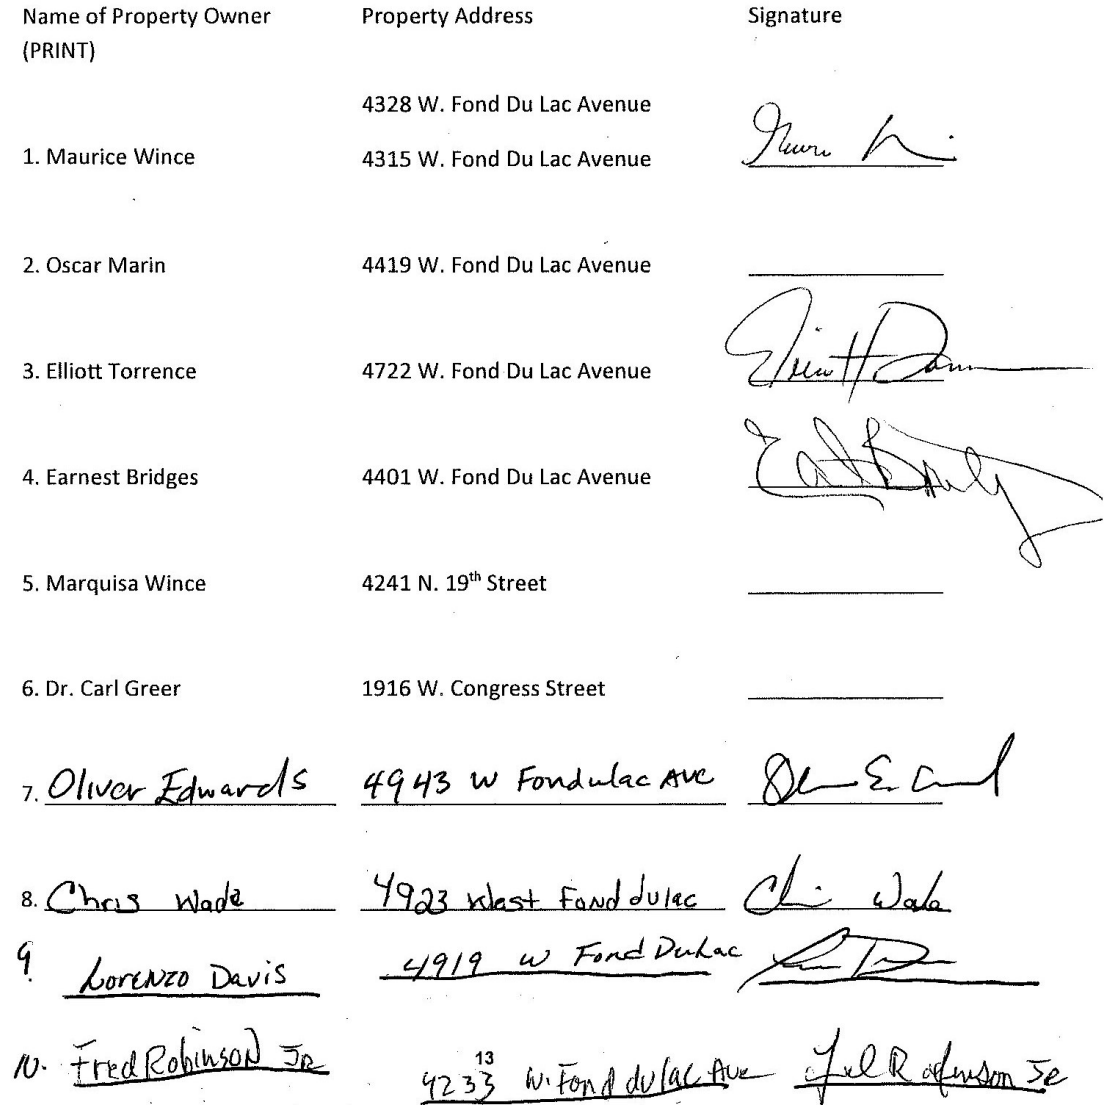 Name of Property Owner Property Address Signature
(PRINT)
4328 W. Fond Du Lac Avenue
1. Maurice Wince 4315 W. Fond Du Lac Avenue
2. Oscar Marin 4419 W. Fond Du Lac Avenue
3. Elliott Torrence 4722 W. Fond Du Lac Avenue
4. Earnest Bridges 4401 W. Fond Du Lac Avenue
5. Marquisa Wince 4241 N. 19th Street
6. Dr. Carl Greer 1916 W. Congress Street
7. Oliver Edwards 4943 W Fondulac Ave
8. Chris Wade 4923 West Fond dulac Chris Wade
9. Lorenzo Davis 4919 W Fond DuLac
10. Fred Robinson Jr 4233 W. Fond du lac Ave Fred Robinson Jr
13